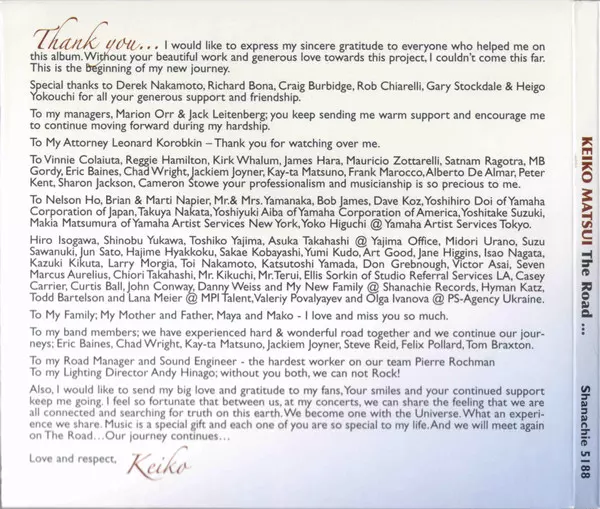 Thank you... I would like to express my sincere gratitude to everyone who helped me on
this album. Without your beautiful work and generous love towards this project, I couldn't come this far.
This is the beginning of my new journey.
Special thanks to Derek Nakamoto, Richard Bona, Craig Burbidge, Rob Chiarelli, Gary Stockdale & Heigo
Yokouchi for all your generous support and friendship.
To my managers, Marion Orr & Jack Leitenberg; you keep sending me warm support and encourage me
to continue moving forward during my hardship.
To My Attorney Leonard Korobkin – Thank you for watching over me.
To Vinnie Colaiuta, Reggie Hamilton, Kirk Whalum, James Hara, Mauricio Zottarelli, Satnam Ragotra, MB
Gordy, Eric Baines, Chad Wright, Jackiem Joyner, Kay-ta Matsuno, Frank Marocco, Alberto De Almar, Peter
Kent, Sharon Jackson, Cameron Stowe your professionalism and musicianship is so precious to me.
To Nelson Ho, Brian & Marti Napier, Mr.& Mrs. Yamanaka, Bob James, Dave Koz, Yoshihiro Doi of Yamaha
Corporation of Japan, Takuya Nakata, Yoshiyuki Aiba of Yamaha Corporation of America, Yoshitake Suzuki,
Makia Matsumura of Yamaha Artist Services New York, Yoko Higuchi @ Yamaha Artist Services Tokyo.
Hiro Isogawa, Shinobu Yukawa, Toshiko Yajima, Asuka Takahashi @ Yajima Office, Midori Urano, Suzu
Sawanuki, Jun Sato, Hajime Hyakkoku, Sakae Kobayashi, Yumi Kudo, Art Good, Jane Higgins, Isao Nagata,
Kazuki Kikuta, Larry Morgia, Toi Nakamoto, Katsutoshi Yamada, Don Grebnough, Victor Asai, Seven
Marcus Aurelius, Chiori Takahashi, Mr. Kikuchi, Mr. Terui, Ellis Sorkin of Studio Referral Services LA, Casey
Carrier, Curtis Ball, John Conway, Danny Weiss and My New Family @ Shanachie Records, Hyman Katz,
Todd Bartelson and Lana Meier @ MPI Talent, Valeriy Povalyayev and Olga Ivanova @ PS-Agency Ukraine.
To My Family; My Mother and Father, Maya and Mako - I love and miss you so much.
To my band members; we have experienced hard & wonderful road together and we continue our jour-
neys; Eric Baines, Chad Wright, Kay-ta Matsuno, Jackiem Joyner, Steve Reid, Felix Pollard, Tom Braxton.
To my Road Manager and Sound Engineer - the hardest worker on our team Pierre Rochman
To my Lighting Director Andy Hinago; without you both, we can not Rock!
Also, I would like to send my big love and gratitude to my fans, Your smiles and your continued support
keep me going. I feel so fortunate that between us, at my concerts, we can share the feeling that we are
all connected and searching for truth on this earth. We become one with the Universe. What an experi-
ence we share. Music is a special gift and each one of you are so special to my life. And we will meet again
on The Road...Our journey continues...
Love and respect, Keiko
KEIKO MATSUI The Road ...
Shanachie 5188